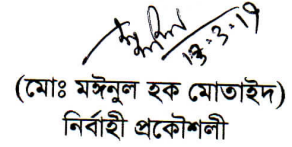 ১৯-৩-১৭
(মোঃ মঈনুল হক মোতাইদ)
নির্বাহী প্রকৌশলী